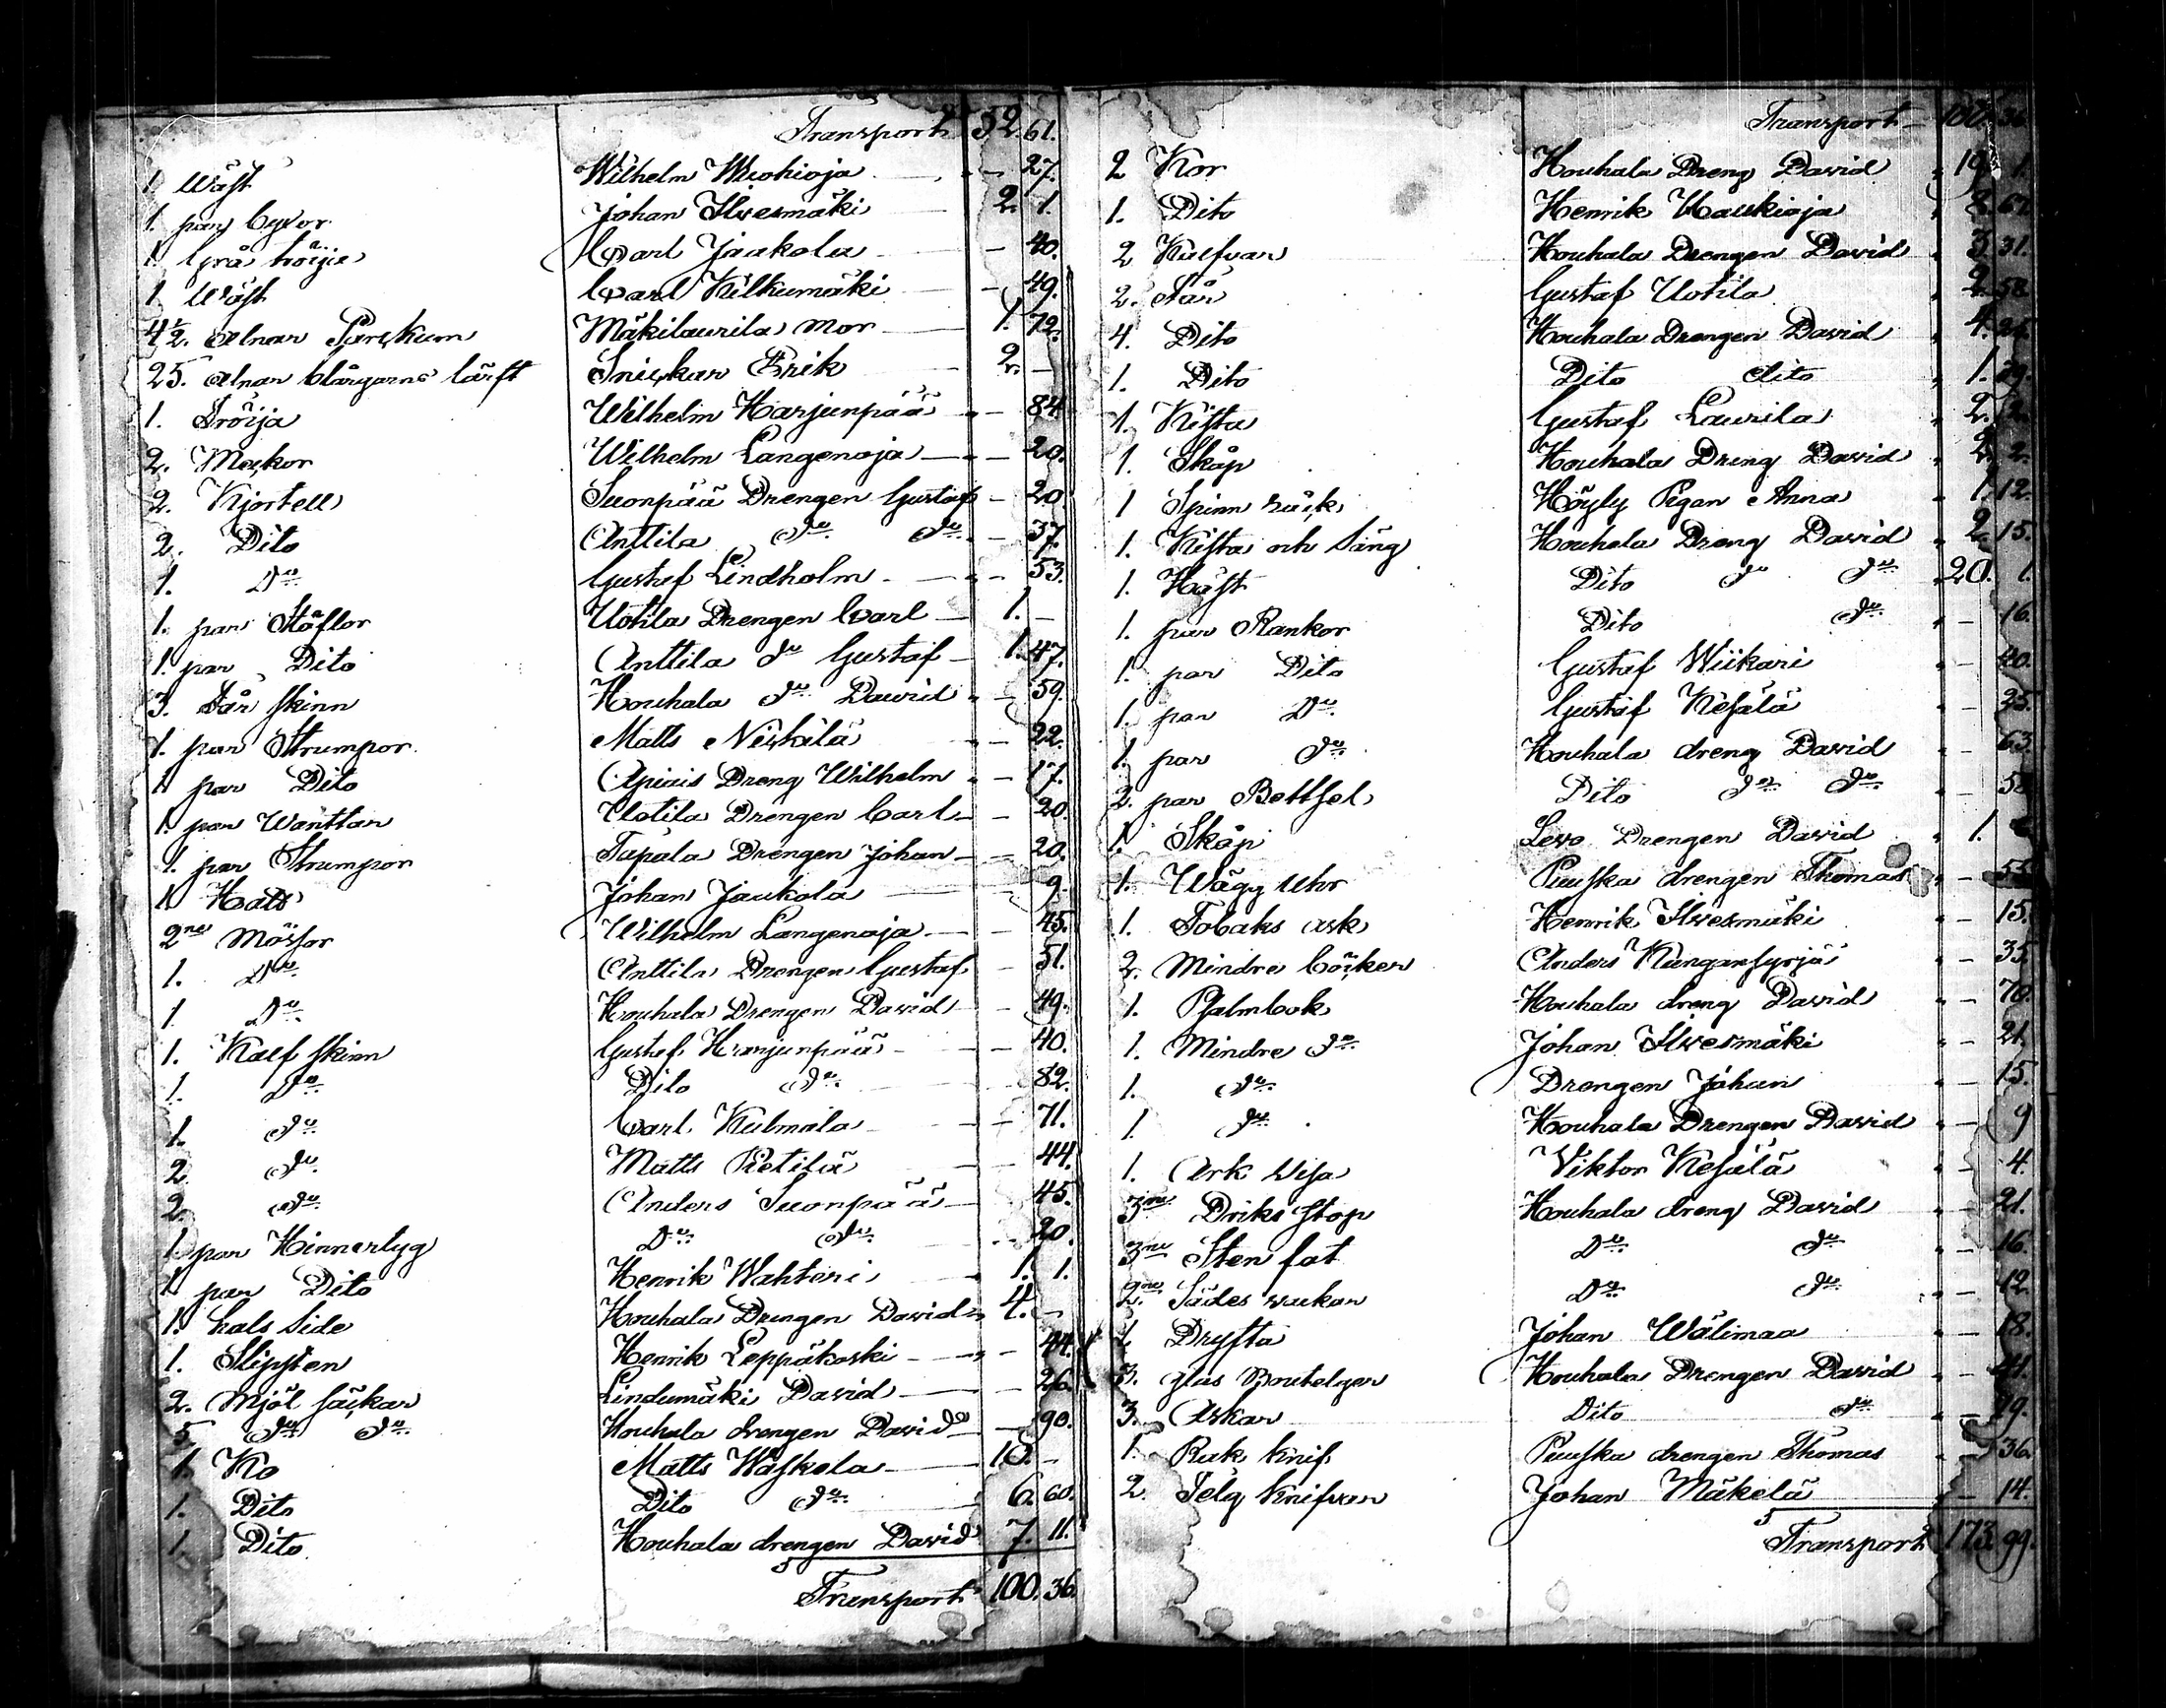 Transport 52. 61.
1. Wäst Wilhelm Wuohioja — 27.
1. par byxor Johan Ilvesmäki 2. 1.
1. Grå tröija Carl Jaakola — 40.
1. Wäst Carl Kilkumäki — 49.
4½. alnar Parskum Mäkilaurila mor 1. 72.
25. alnar blårgarns lärft Snickar Erik 2. —
1. Tröija Wilhelm Harjunpää — 84
2. Muckor Wilhelm Langenoja — 20.
2. Kjortell Suonpää Drengen Gustaf — 20
2. Dito Anttila do do — 37.
1. Do Gustaf Lindholm — 53.
1. par Stöflor Uotila Drengen Carl 1. —
1. par Dito Anttila do Gustaf 1. 47.
3. Får skinn Houhala do David — 59.
1. par Strumpor Matts Niskilä — 22.
1. par Dito Apiais Dreng Wilhelm — 17.
1. par Wanttar Uotila Drengen Carl — 20.
1. par Strumpor Tapala Drengen Johan — 20.
1. Hatt Johan Jaakola — 9.
2ne Mössor Wilhelm Langenoja — 45.
1. Do Anttila Drengen Gustaf — 51.
1. Do Houhala Drengen David — 49.
1. Kalf skinn Gustaf Harjunpää — 40.
1. Do Dito do 82.
1. do Carl Kulmala — 71.
2. do Matts Pietilä — 44.
2. do Anders Suonpää 45.
1. par Hinnertyg Do do 20.
1. par Dito Henrik Wahteri 1. 1.
1. hals Side Houhala Drengen David 4. —
1. Slipsten Henrik Leppäkoski — 44.
2. Mjöl säckar Lindumäki David — 26.
5. do do Houhala drengen David — 90.
1. Ko Matts Waskela 10. —
1. Dito Dito do 6. 60.
1. Dito Houhala drengen David 7. 11.
Transport 100. 36.
Transport 100. 36
2 Kor Houhala Dreng David 19. 1.
1. Dito Henrik Haukioja 8. 67.
2 Kalfvar Houhala Drengen David 3. 31.
2. Får Gustaf Uotila 2. 58
4. Dito Houhala Drengen David 4.
1. Dito Dito dito 1. 29.
1. Kista Gustaf Laurila 2. 12.
1. Skåp Houhala Dreng David 2. 2.
1 Spinn råck Höyly Pigan Anna 1. 12.
1. Kista och Säng Houhala Dreng David 2. 15.
1. Häst Dito do do 20. 1.
1. par Rankor Dito do — 16.
1. par Dito Gustaf Wiikari — 40.
1. par Do Gustaf Kesälä — 25.
1. par do Houhala dreng David — 63.
2. par Bettsel Dito do do — 58
1. Skåp Levo Drengen David 1.
1. Wägg Uhr Puuska drengen Thomas — 53
1. Tobaks ask Henrik Ilvesmäki — 15.
2. Mindre böcker Anders Kungansyrjä — 35.
1. Psalmbok Houhala dreng David — 70.
1. Mindre do Johan Ilvesmäki — 21.
1. do Drengen Johan — 15.
1. do Houhala Drengen David — 9
1. Ark Visa Viktor Kesälä — 4.
3ne Driks stop Houhala dreng David — 21.
3ne Sten fat Do do — 16.
2ne Sädes wakar Do do — 12.
1. Dryfta Johan Wälimaa — 18.
3. glas Bouteljer Houhala Drengen David — 41.
3. Askar Dito do — 29.
1. Rak knif Puuska drengen Thomas — 36.
2. Telg knifvar Johan Mäkelä — 14.
Transport 173. 99.